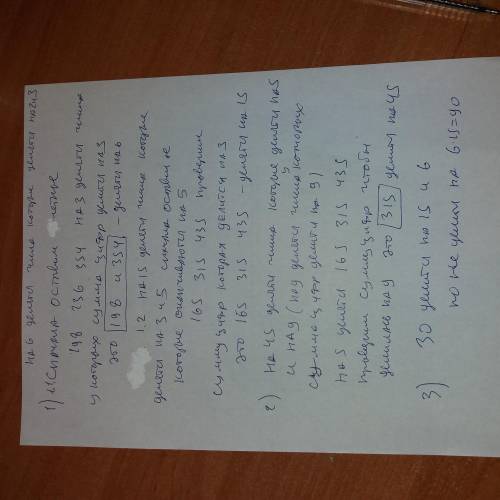 на 6 делят числа которые делят на 2 и 3
1) 1.1 Сначала оставим четные
198 236 354 на 3 делят числа
у которых сумма цифр делят на 3
это 198 и 354 - делят на 6
1.2 на 15 делят числа которые
делят на 3 и 5 сначала оставим
которые оканчиваются на 5
165 315 435 проверим
сумму цифр которая делится на 3
это 165 315 435 - делят на 15
2) на 45 делят числа которые делят на 5
и на 9 (на 9 делят числа у которых
сумма цифр делят на 9)
на 5 делят 165 315 435
проверим сумму цифр чтобы
делилась на 9 это 315 делят на 45
3) 30 делят на 15 и 6
но не делят на 6·15=90